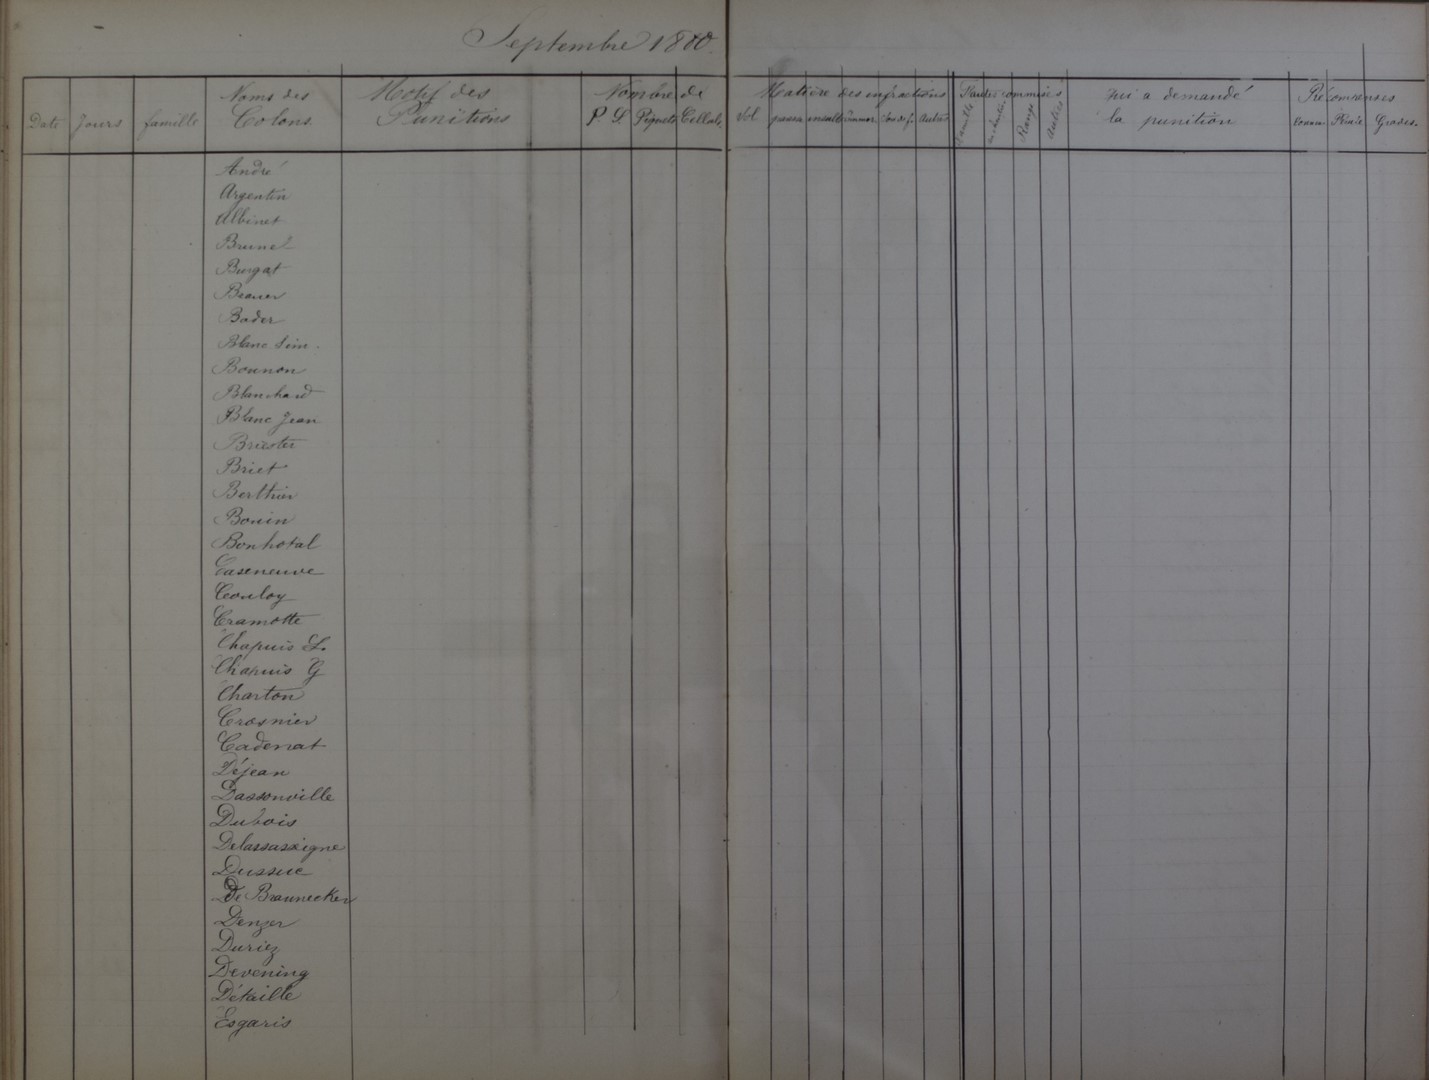 Septembre 1880
Date Jours famille Noms des Colons Motif des Punitions Nombre de P. S. Piquets Cellule
Matière des infractions Vol insult autres
Fautes commises famille Rangs autres
qui a demandé la punition
Récompenses Prix Grades.
André
Argentin
Albinet
Brunel
Burgat
Brauer
Bader
Blanc Sim.
Bounon
Blanchard
Blanc Jean
Briester
Briet
Berthier
Bouin
Bonhotal
Caseneuve
Couloy
Cramotte
Chapuis L.
Chapuis G
Charton
Crosnier
Cadenat
Déjean
Dassonville
Dubois
Delassassigne
Dussuc
De Braunecker
Denzer
Duriez
Devening
Détaille
Esgaris